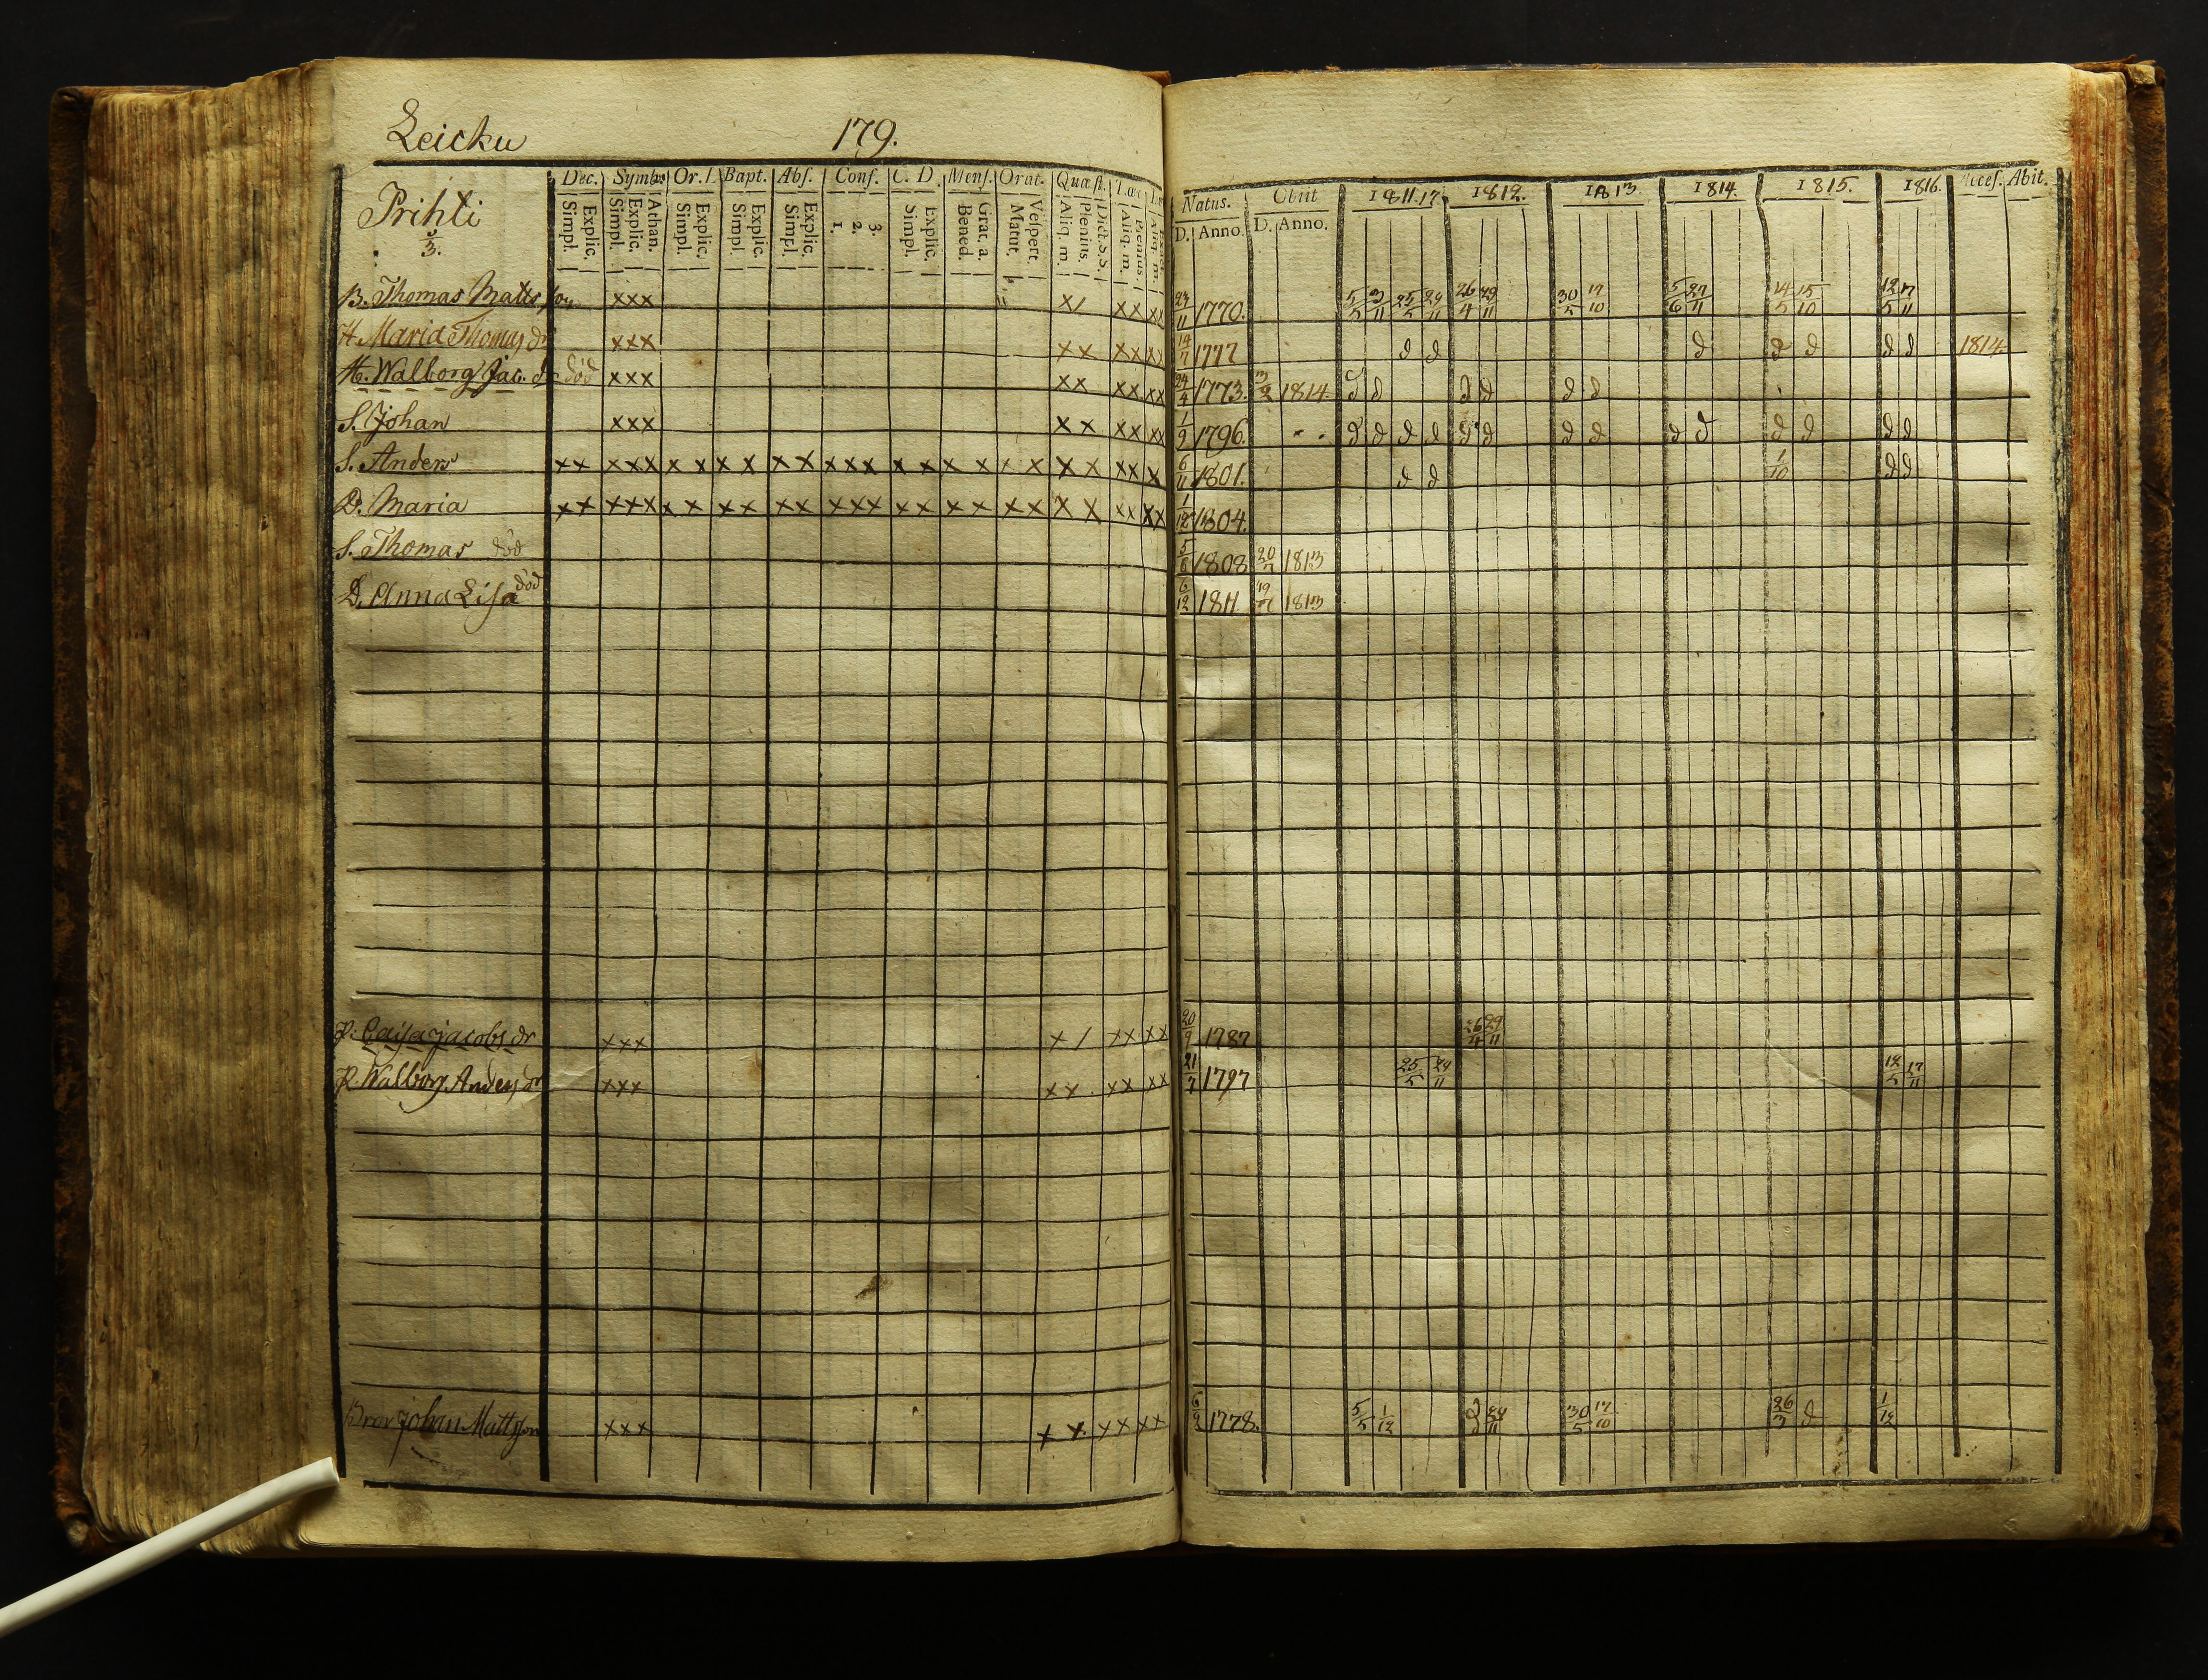 Leicku 179.
Prihti
3.
Dec. Symb. Or. Bapt. Abs. Conf. C. D. Mens. Orat. Quæst.
Simpl. Explic. Simpl. Explic. Athan. Simpl. Explic. Simpl. Explic. Simpl. Explic. 1. 2. 3. Simpl. Explic. Bened. Grat. a. Matut. Vespert. Aliq. m. Plenius. Dict. S. S. Aliq. m. Plenius Aliq. m.
Natus. Obiit 1811.17 1812. 1813 1814. 1815. 1816. Acces. Abit.
D. Anno. D. Anno.
B. Thomas Matts son xxx x/ xx xx 1770. 5/5 25/5 26/4 29/11 30/5 17/10 5/6 27/11 14/5 15/10 12/5 17/11
H. Maria Thomas dr xxx xx xx xx 14/7 1777 d d d d d d d 1814
H. Walborg Jac. dr död xxx xx xx xx 24/4 1773. 1814. d d d d d d
S. Johan xxx xx xx xx 1/9 1796. d d d d d d d d d d d d d d
S. Anders xx xxx x x x x xx xxx x x x x x x x x xx x 6/11 1801. d d 1/10 d d
D. Maria xx xxx x x xx xx xxx xx xx xx x x xx xx 1/12 1804.
S. Thomas död 1808 20/7 1813
D. Anna Lisa död 6/12 1811 19/7 1813
P. Caisa Jacobs dr xxx x / xx xx 20/9 1787 26/4 29/11
P. Walborg Anders dr xxx xx xx xx 21/7 1797 25/5 24/11 12/5 17/11
Bror Johan Matts son xxx x x xx xx 6/2 1778. 5/5 1/12 30/5 17/10 26/3 d 1/12